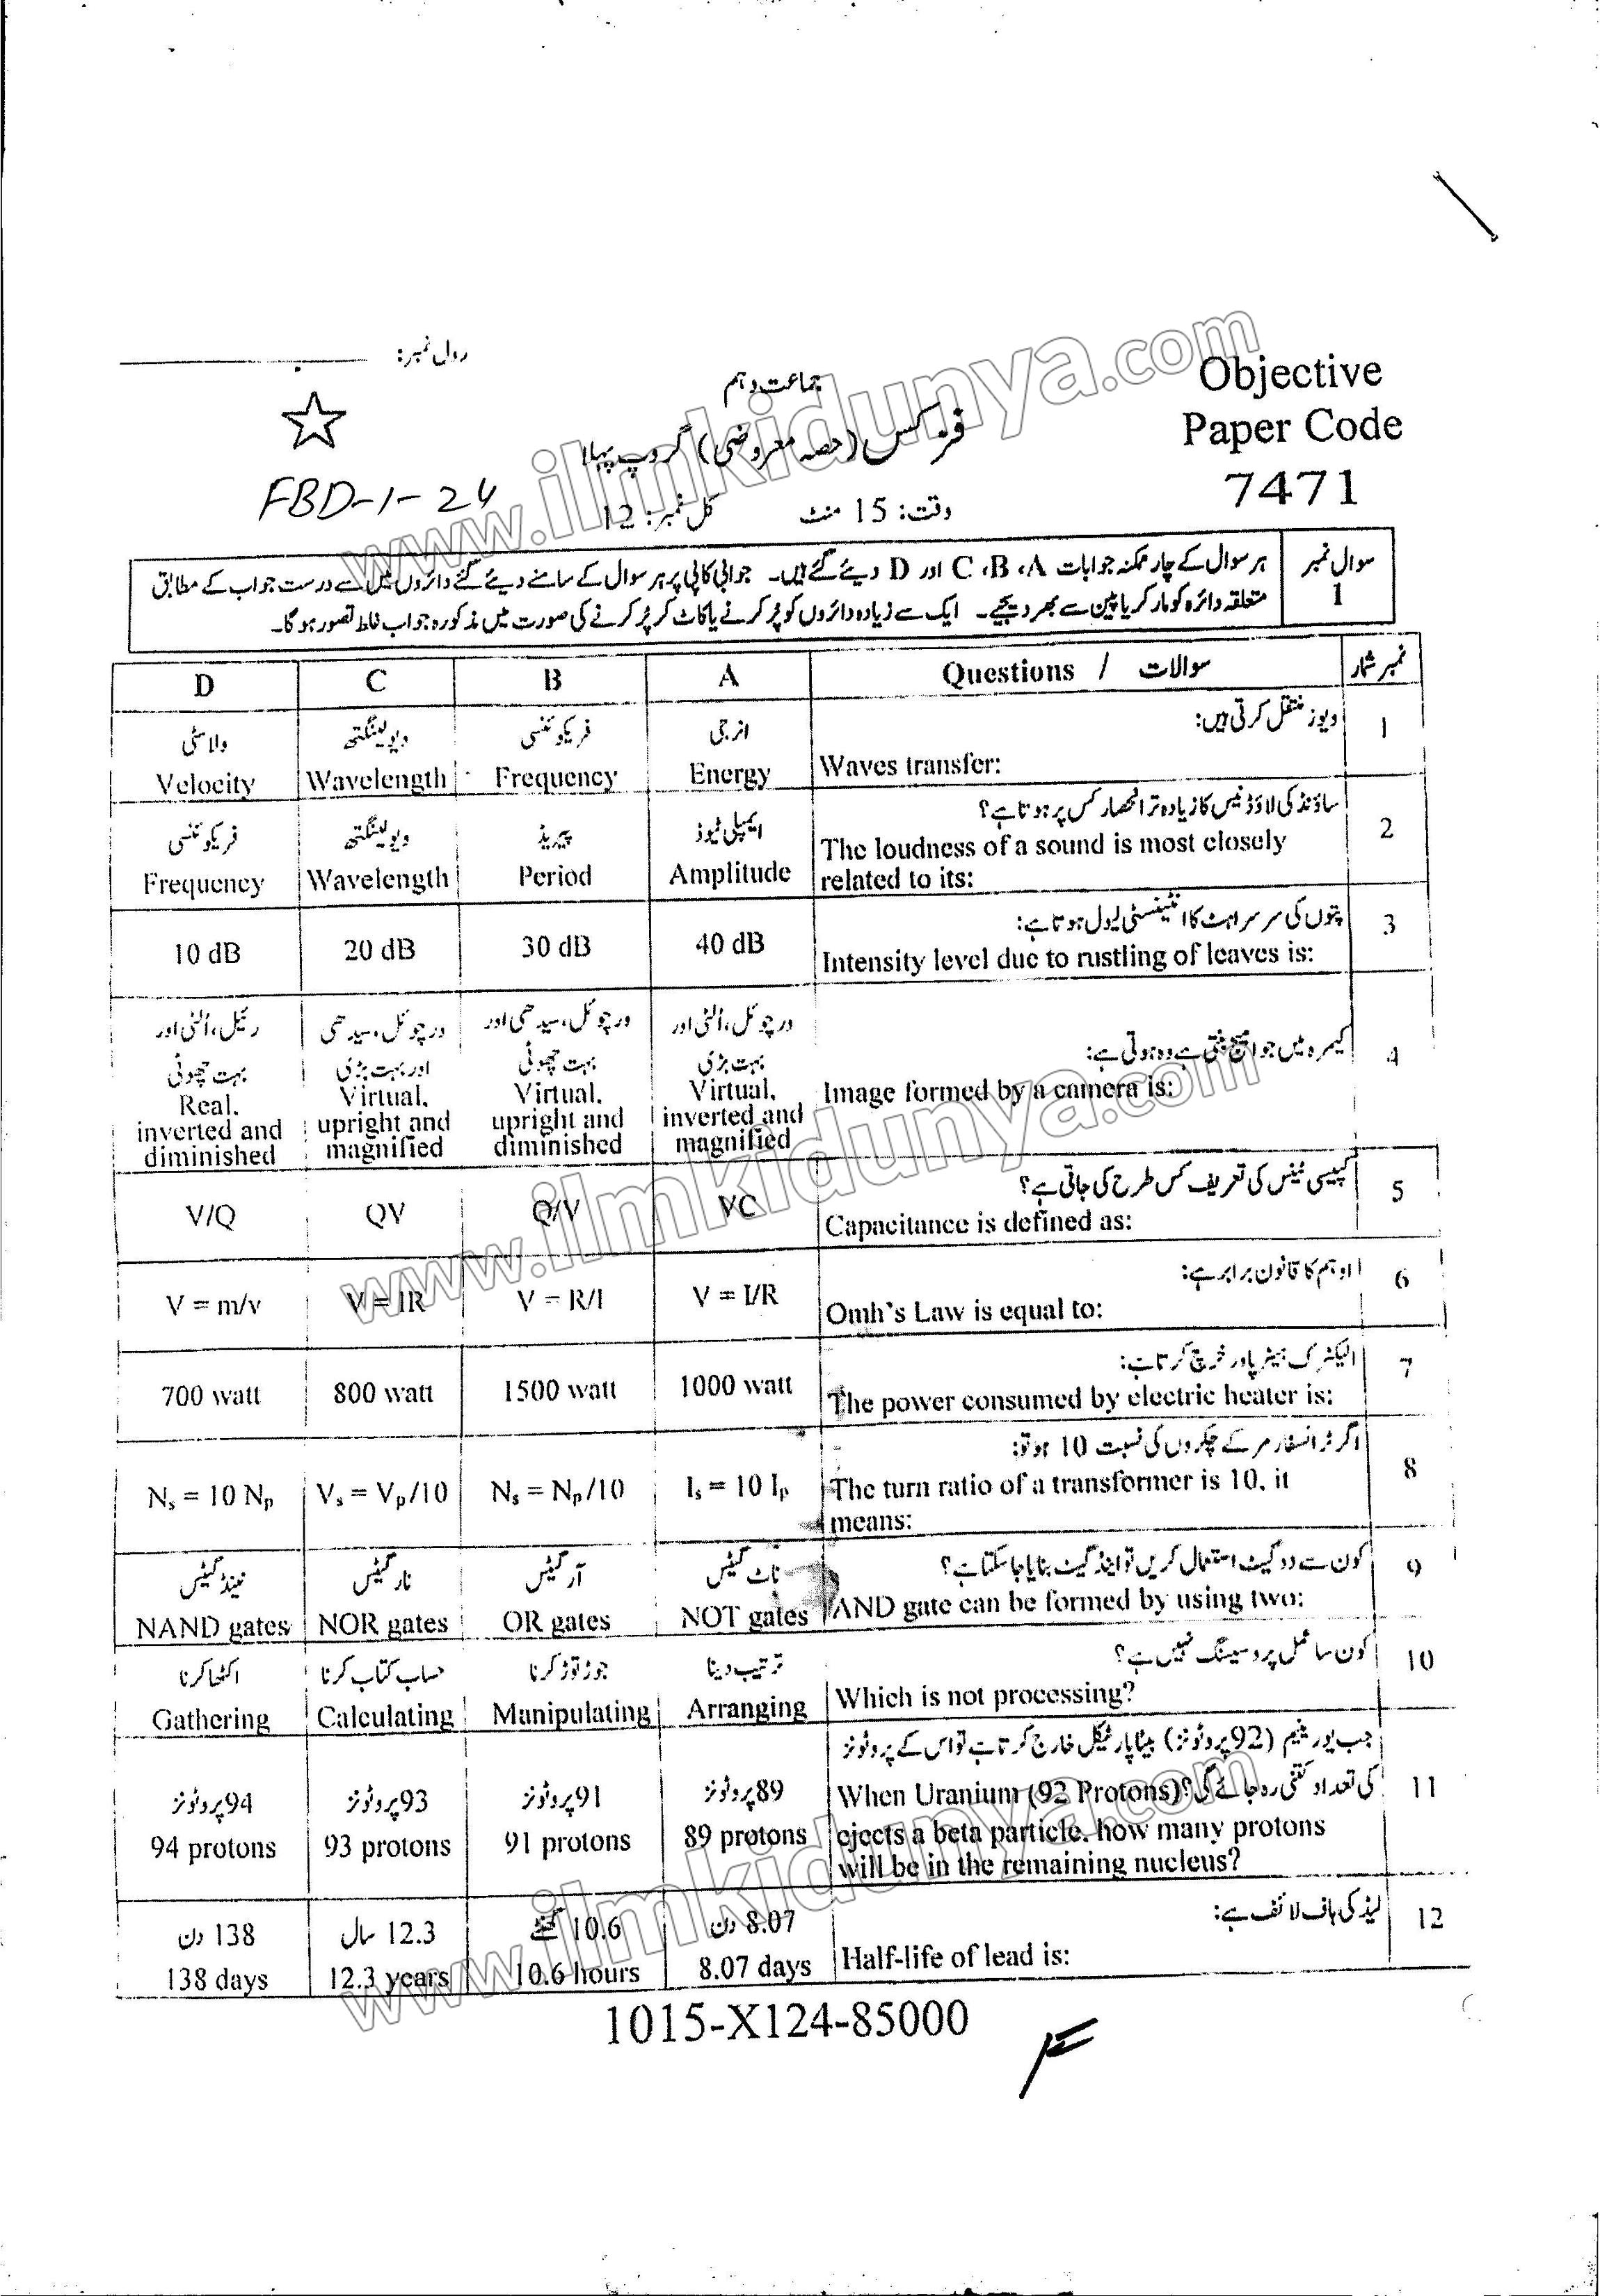 رول نمبر:
جماعت دہم
Objective
Paper Code
7471
فزکس (حصہ معروضی) گروپ پہلا
FBD-1-24
وقت: 15 منٹ
کل نمبر: 12
سوال نمبر 1
ہر سوال کے چار ممکنہ جوابات A، B، C اور D دیئے گئے ہیں۔ جوابی کاپی پر ہر سوال کے سامنے دیئے گئے دائروں میں سے درست جواب کے مطابق
متعلقہ دائرہ کو مارکر یا پین سے بھر دیجیے۔ ایک سے زیادہ دائروں کو پُر کرنے یا کاٹ کر پُر کرنے کی صورت میں مذکورہ جواب غلط تصور ہو گا۔
نمبر شمار
Questions / سوالات
A
B
C
D
1
ویوز منتقل کرتی ہیں:
Waves transfer:
انرجی
Energy
فریکوئنسی
Frequency
ویولینگتھ
Wavelength
ولاسٹی
Velocity
2
ساؤنڈ کی لاؤڈنیس کا زیادہ تر انحصار کس پر ہوتا ہے؟
The loudness of a sound is most closely
related to its:
ایمپلی ٹیوڈ
Amplitude
پیریڈ
Period
ویولینگتھ
Wavelength
فریکوئنسی
Frequency
3
پتوں کی سرسراہٹ کا انٹینسٹی لیول ہوتا ہے:
Intensity level due to rustling of leaves is:
40 dB
30 dB
20 dB
10 dB
4
کیمرہ میں جو امیج بنتی ہے وہ ہوتی ہے:
Image formed by a camera is:
ورچوئل، اُلٹی اور
بہت بڑی
Virtual,
inverted and
magnified
ورچوئل، سیدھی اور
بہت چھوٹی
Virtual,
upright and
diminished
ورچوئل، سیدھی
اور بہت بڑی
Virtual,
upright and
magnified
رئیل، اُلٹی اور
بہت چھوٹی
Real,
inverted and
diminished
5
کپیسی ٹینس کی تعریف کس طرح کی جاتی ہے؟
Capacitance is defined as:
VC
Q/V
QV
V/Q
6
اوہم کا قانون برابر ہے:
Omh's Law is equal to:
V = I/R
V = R/I
V = IR
V = m/v
7
الیکٹرک ہیٹر پاور خرچ کرتا ہے:
The power consumed by electric heater is:
1000 watt
1500 watt
800 watt
700 watt
8
اگر ٹرانسفارمر کے چکروں کی نسبت 10 ہو تو:
The turn ratio of a transformer is 10, it
means:
Is = 10 Ip
Ns = Np/10
Vs = Vp/10
Ns = 10 Np
9
کون سے دو گیٹ استعمال کریں تو اینڈ گیٹ بنایا جا سکتا ہے؟
AND gate can be formed by using two:
ناٹ گیٹس
NOT gates
آر گیٹس
OR gates
نار گیٹس
NOR gates
نینڈ گیٹس
NAND gates
10
کون سا عمل پروسیسنگ نہیں ہے؟
Which is not processing?
ترتیب دینا
Arranging
جوڑ توڑ کرنا
Manipulating
حساب کتاب کرنا
Calculating
اکٹھا کرنا
Gathering
11
جب یورینیم (92 پروٹونز) بیٹا پارٹیکل خارج کرتا ہے تو اس کے پروٹونز
کی تعداد کتنی رہ جائے گی؟
When Uranium (92 Protons)
ejects a beta particle, how many protons
will be in the remaining nucleus?
89 پروٹونز
89 protons
91 پروٹونز
91 protons
93 پروٹونز
93 protons
94 پروٹونز
94 protons
12
لیڈ کی ہاف لائف ہے:
Half-life of lead is:
8.07 دن
8.07 days
10.6 گھنٹے
10.6 hours
12.3 سال
12.3 years
138 دن
138 days
1015-X124-85000
www.ilmkidunya.com
www.ilmkidunya.com
www.ilmkidunya.com